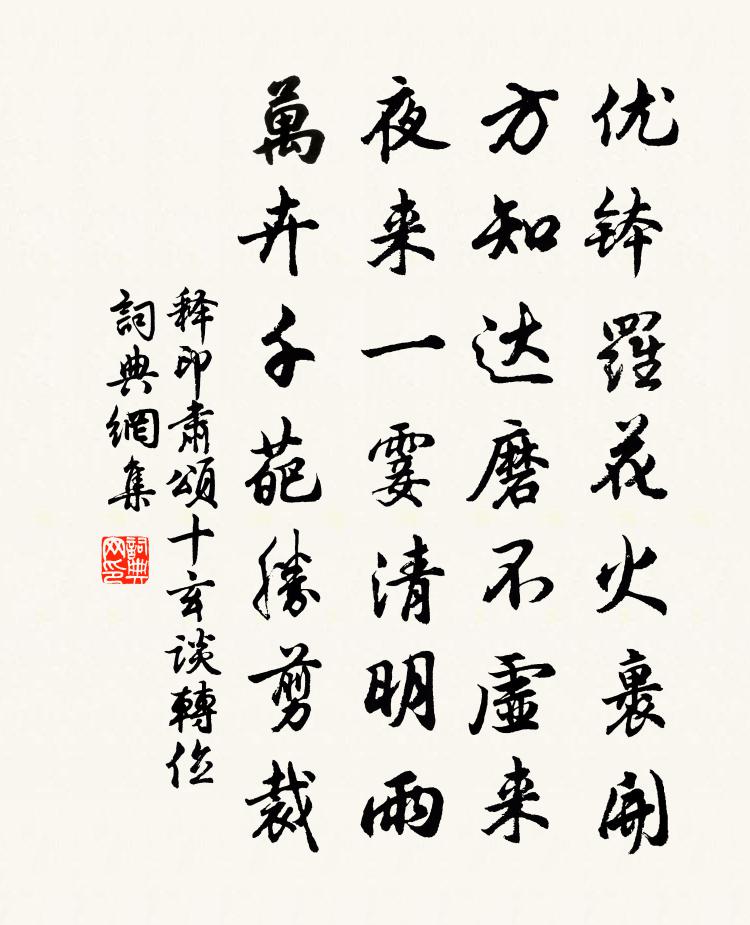 优钵羅花火裏開
方知达磨不虛来
夜来一霎清明雨
萬卉千葩勝剪裁
释印肅頌十玄谈轉位
詞典網集
詞典网印